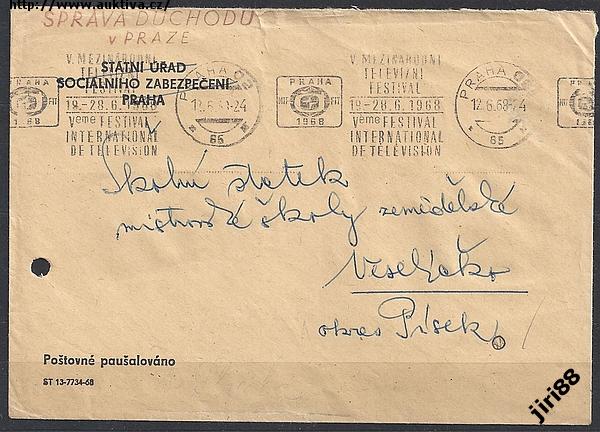 http://www.auktiva.cz/
SPRÁVA DŮCHODŮ
V PRAZE
STÁTNÍ ÚŘAD
SOCIÁLNÍHO ZABEZPEČENÍ
PRAHA
V MEZINÁRODNÍ
TELEVIZNÍ
FESTIVAL
19.-28.6.1968
Vème FESTIVAL
INTERNATIONAL
DE TÉLÉVISION
PRAHA
1968
PRAHA 02
12.6.68-24
65
V MEZINÁRODNÍ
TELEVIZNÍ
FESTIVAL
19.-28.6.1968
Vème FESTIVAL
INTERNATIONAL
DE TÉLÉVISION
PRAHA
MTF FIT
1968
PRAHA 02
12.6.68-24
65
Školní statek
mistrovské školy zemědělské
Veselíčko
okres Písek
Poštovné paušalováno
ST 13-7734-68
jiri88